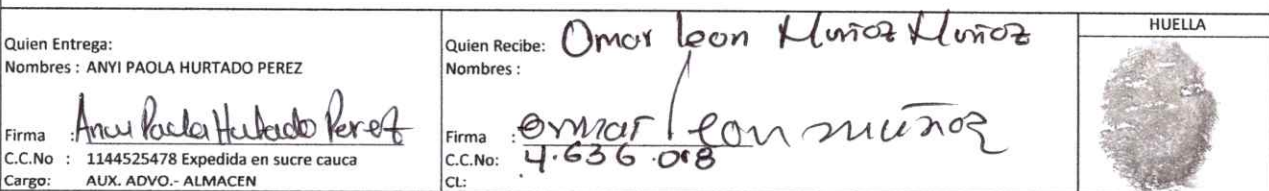 Quien Entrega:
Nombres : ANYI PAOLA HURTADO PEREZ
Firma : Anyi Paola Hurtado Perez
C.C.No : 1144525478 Expedida en sucre cauca
Cargo: AUX. ADVO.- ALMACEN
Quien Recibe: Omar leon Muñoz Muñoz
Nombres :
Firma : omar leon muñoz
C.C.No: 4.636.018
CL:
HUELLA